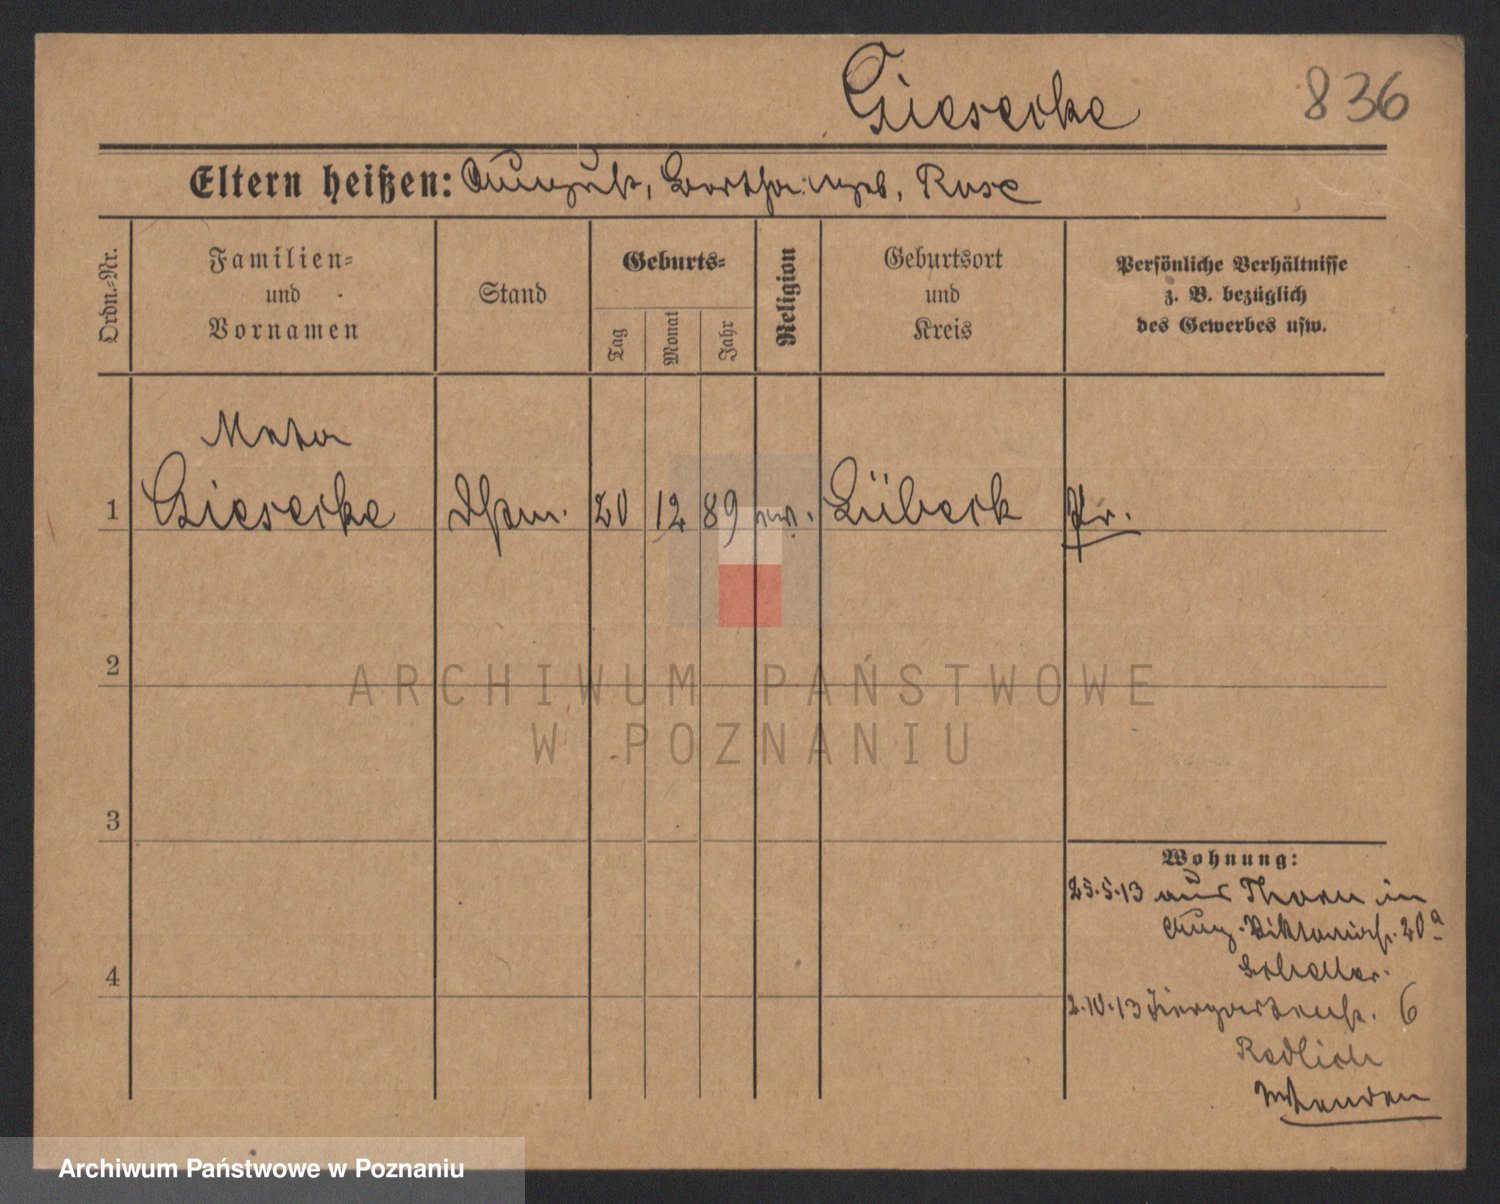 Giesecke 836
Eltern heißen: August, Bertha geb. Rose
Ordn.-Nr.
Familien-
und
Vornamen
Stand
Geburts-
Tag
Monat
Jahr
Religion
Geburtsort
und
Kreis
Persönliche Verhältnisse
z. B. bezüglich
des Gewerbes usw.
Meta
1 Giesecke 20 12 89 ev. Lübeck Pr.
2
ARCHIWUM PAŃSTWOWE
W POZNANIU
3
Wohnung:
25.5.13 aus Thorn in
Aug. Viktoriastr. 20a
4
2.10.13 Tiergartenstr. 6
Redlich
Archiwum Państwowe w Poznaniu